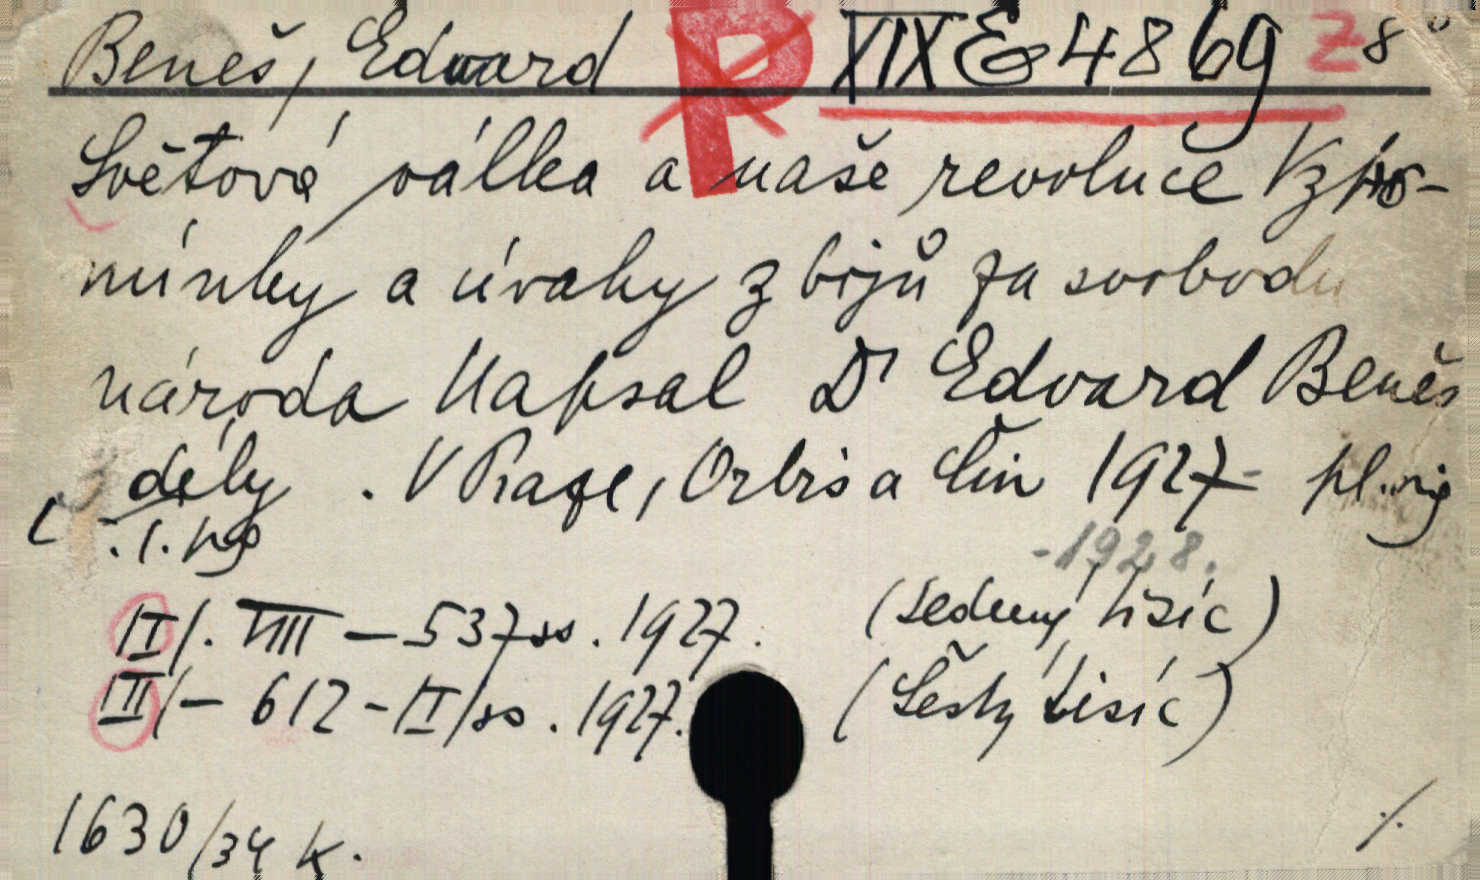 Beneš, Edward P XIX E 4869 Z 8°
Světové válka a naše revoluce Vzpo-
mínky a úvahy z bojů za svobodu
národa Napsal Dr Edvard Beneš
díly . V Praze, Orbis a Čin 1927-
-1928.
II/. VIII — 537 ss. 1927. (Sedmý tisíc)
III/ — 612 - II/ ss. 1927. (Šestý tisíc)
1630/34 K.